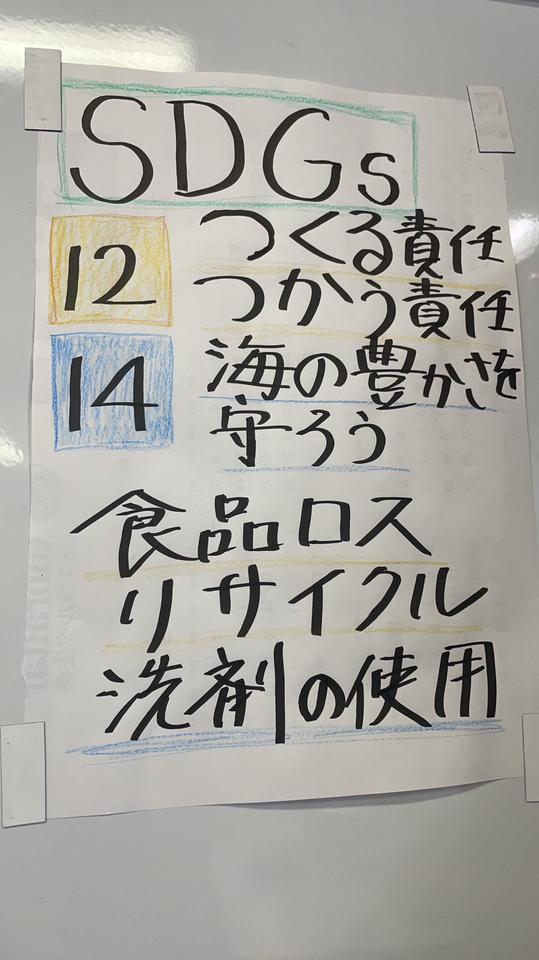 SDGs
12 つくる責任
つかう責任
14 海の豊かさを
守ろう
食品ロス
リサイクル
洗剤の使用